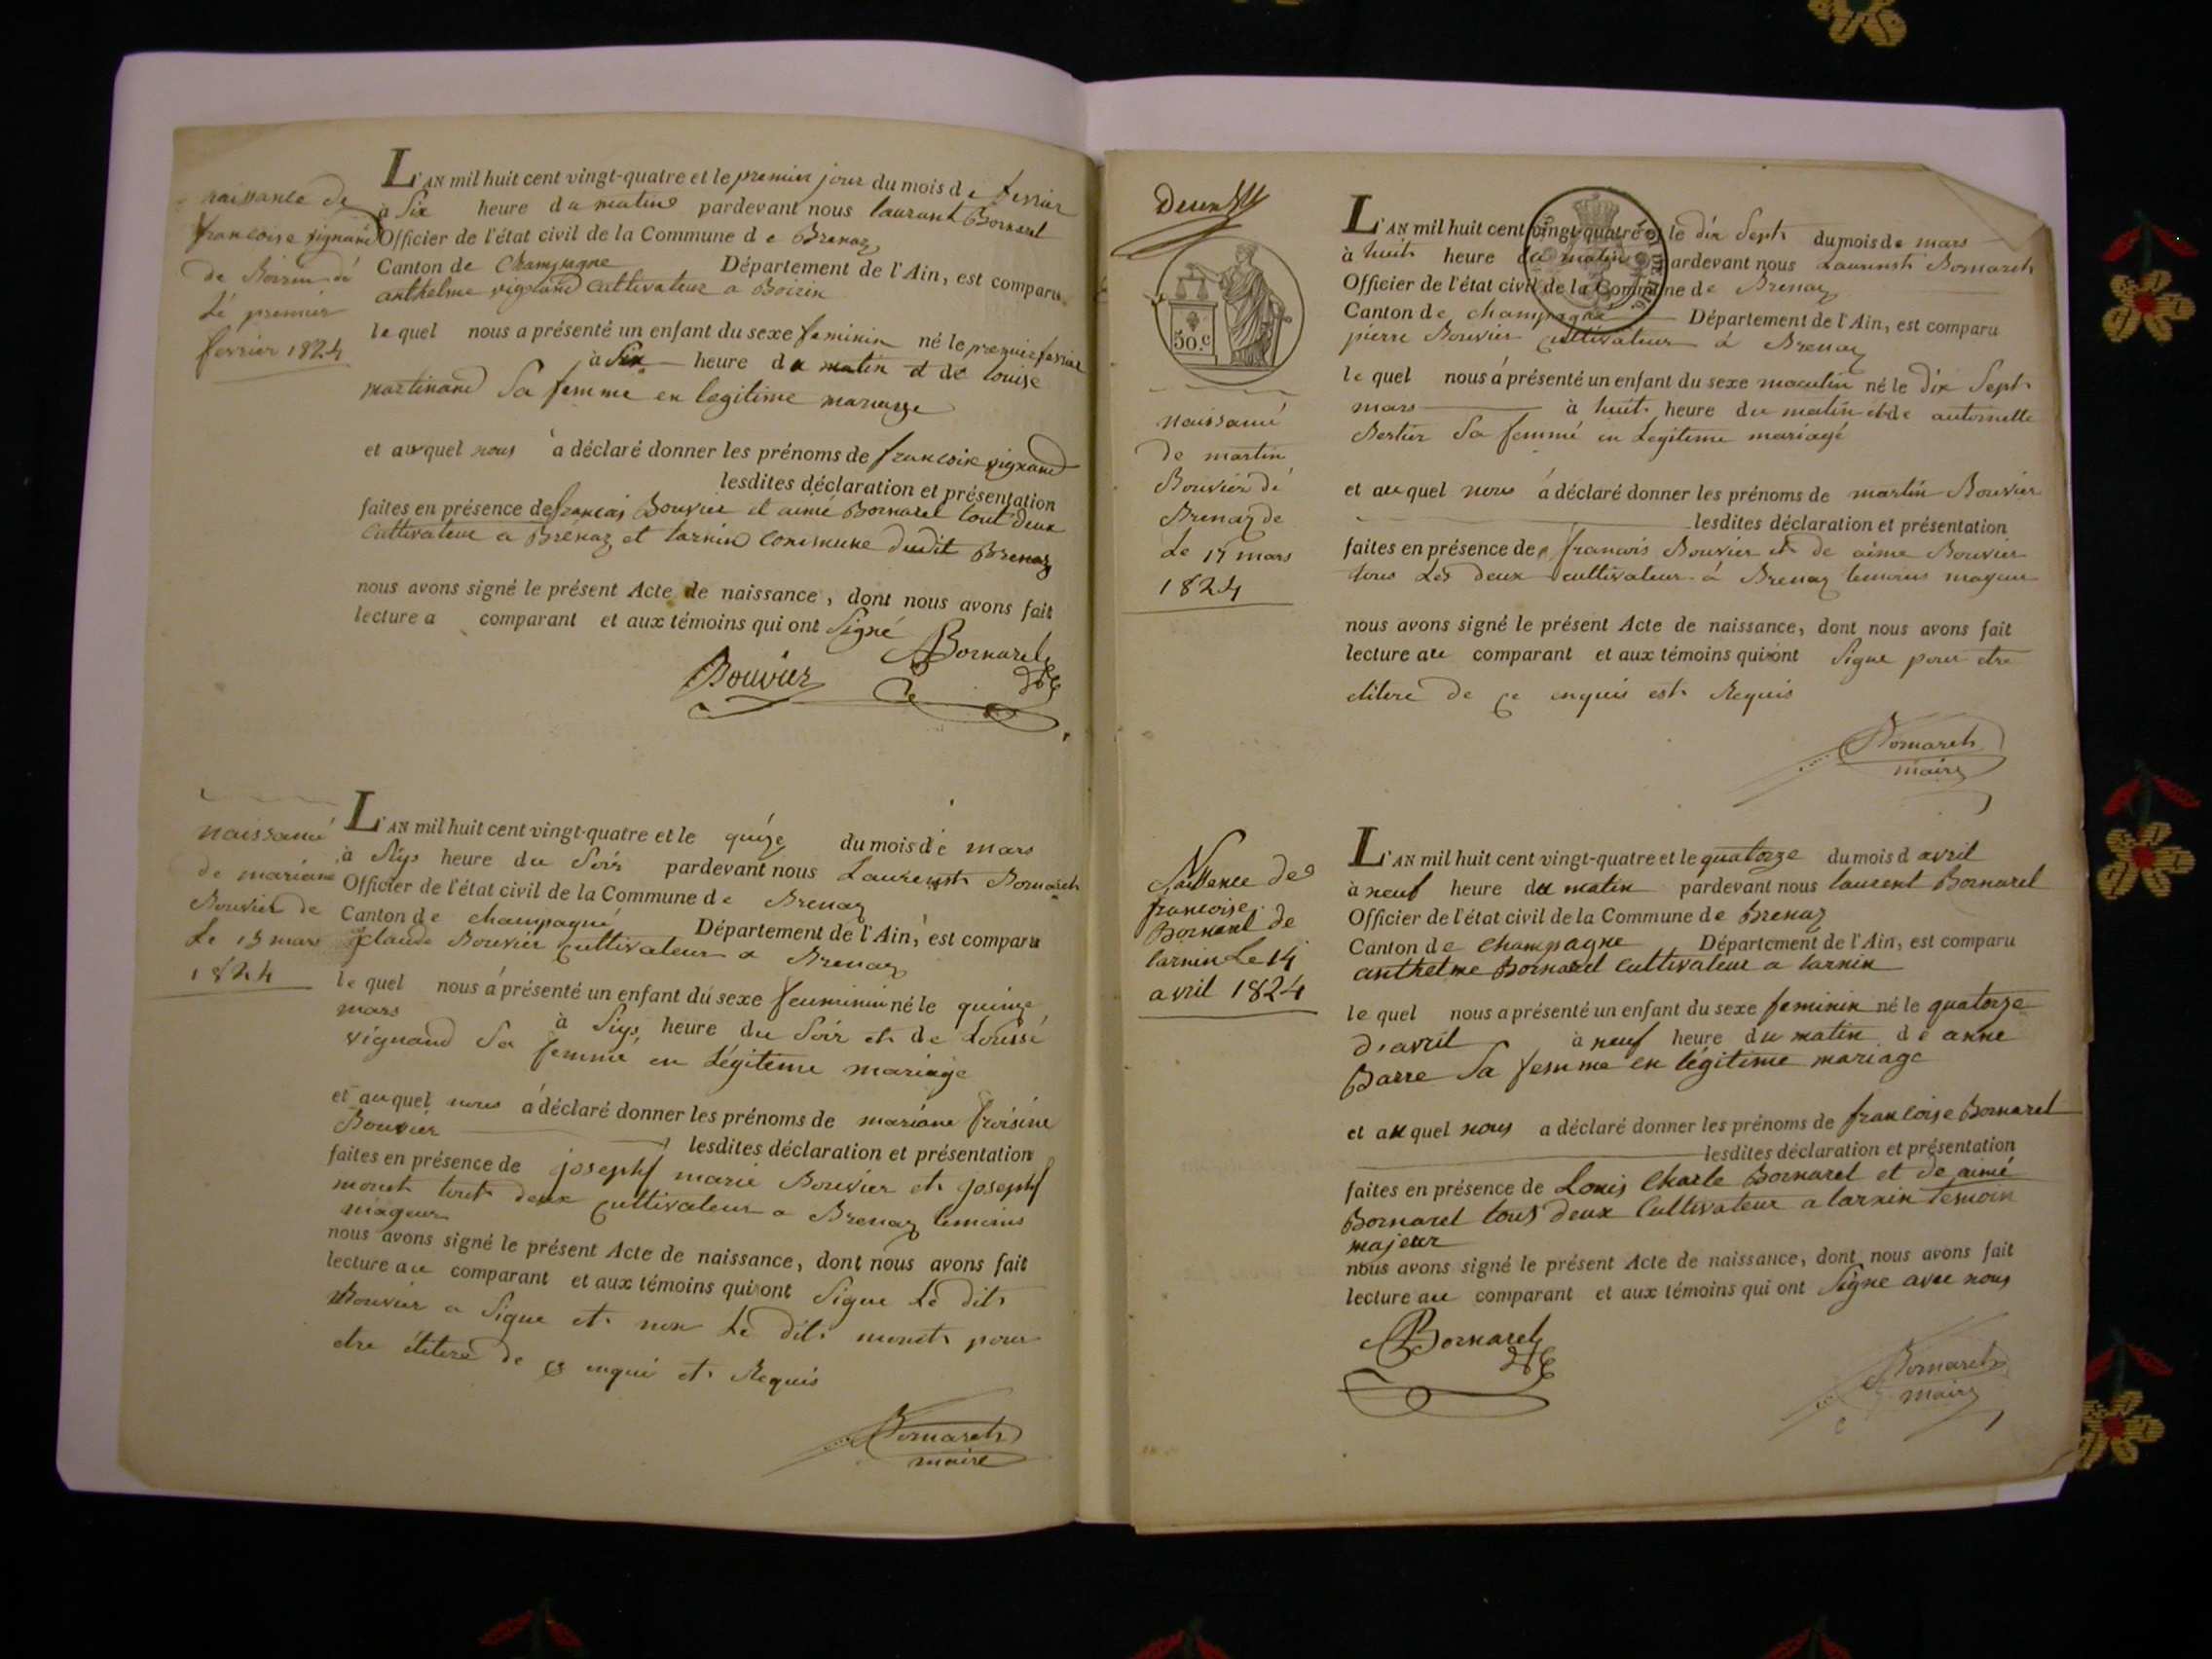 naissance de
françoise vignand
de Boirin dé
Lé premier
fevrier 1824
L'AN mil huit cent vingt-quatre et le premier jour du mois de fevrier
à Six heure du matine pardevant nous laurant Bornarel
Officier de l'état civil de la Commune de Brenaz
Canton de Champagne Département de l'Ain, est comparu
anthelme vignand cultivateur a Boirin
le quel nous a présenté un enfant du sexe feminin né le premier fevrier
à Six heure du matin et de louise
martinand Sa femme en legitime mariage
et auquel nous a déclaré donner les prénoms de francoise vignand
lesdites déclaration et présentation
faites en présence de francois Bouvier et aimé Bornarel tout deux
cultivateur a Brénaz et larnin commune dudit Brenaz
nous avons signé le présent Acte de naissance, dont nous avons fait
lecture a comparant et aux témoins qui ont Signé
Bouvier Bornarel
naissancé
de mariane
Bouvier de
Le 15 mars
1824
L'AN mil huit cent vingt-quatre et le quize du mois de mars
à Siys heure du Soir pardevant nous Laurenst Bornarel
Officier de l'état civil de la Commune de Brenaz
Canton de champagné Département de l'Ain, est comparu
claude Bouvier cultivateur a Brenaz
le quel nous a présenté un enfant du sexe feuminin né le quinze
mars à Siys heure du Soir et de Louisé
vignand Sa femmé en Légiteme mariage
et auquel nous a déclaré donner les prénoms de mariane froisine
Bouvier lesdites déclaration et présentation
faites en présence de joseph marie Bouvier et joseph
monet tout deux cultivateur a Brenaz temoins
mageur
nous avons signé le présent Acte de naissance, dont nous avons fait
lecture au comparant et aux témoins qui ont Signe Le dit
Bouvier a Signe et non Le dit monet pour
etre élitere de ce enqui et Requis
Bornarel
maire
50.c
naissancé
de martin
Bouvier dé
Brenaz de
Le 17 mars
1824
L'AN mil huit cent vingt-quatre et le dix Sept du mois de mars
à huit heure du matin pardevant nous Laurenst Bornarel
Officier de l'état civil de la Commune de Brenaz
Canton de champagne Département de l'Ain, est comparu
pierre Bouvier cultivateur a Brenaz
le quel nous a présenté un enfant du sexe masculin né le dix Sept
mars à huit heure du matin et de antoinette
Bertier Sa femmé en Legiteme mariagé
et auquel nous a déclaré donner les prénoms de martin Bouvier
lesdites déclaration et présentation
faites en présence de francois Bouvier et de aime Bouvier
tous Les deux cultivateur a Brenaz temoins mageur
nous avons signé le présent Acte de naissance, dont nous avons fait
lecture au comparant et aux témoins qui ont Signe pour etre
elitere de ce enquis est Requis
Bornarel
maire
Naissence de
francoise
Bornarel de
larnin Le 14
avril 1824
L'AN mil huit cent vingt-quatre et le quatorze du mois d avril
à neuf heure du matin pardevant nous laurent Bornarel
Officier de l'état civil de la Commune de Brenaz
Canton de Champagne Département de l'Ain, est comparu
anthelme Bornarel cultivateur a larnin
le quel nous a présenté un enfant du sexe feminin né le quatorze
d'avril à neuf heure du matin de anne
Barre Sa femme en légitime mariage
et auquel nous a déclaré donner les prénoms de francoise Bornarel
lesdites déclaration et présentation
faites en présence de Louis Charle Bornarel et de aimé
Bornarel tous deux Cultivateur a larnin temoin
majeur
nous avons signé le présent Acte de naissance, dont nous avons fait
lecture au comparant et aux témoins qui ont Signe avec nous
Bornarel
Bornarel
maire